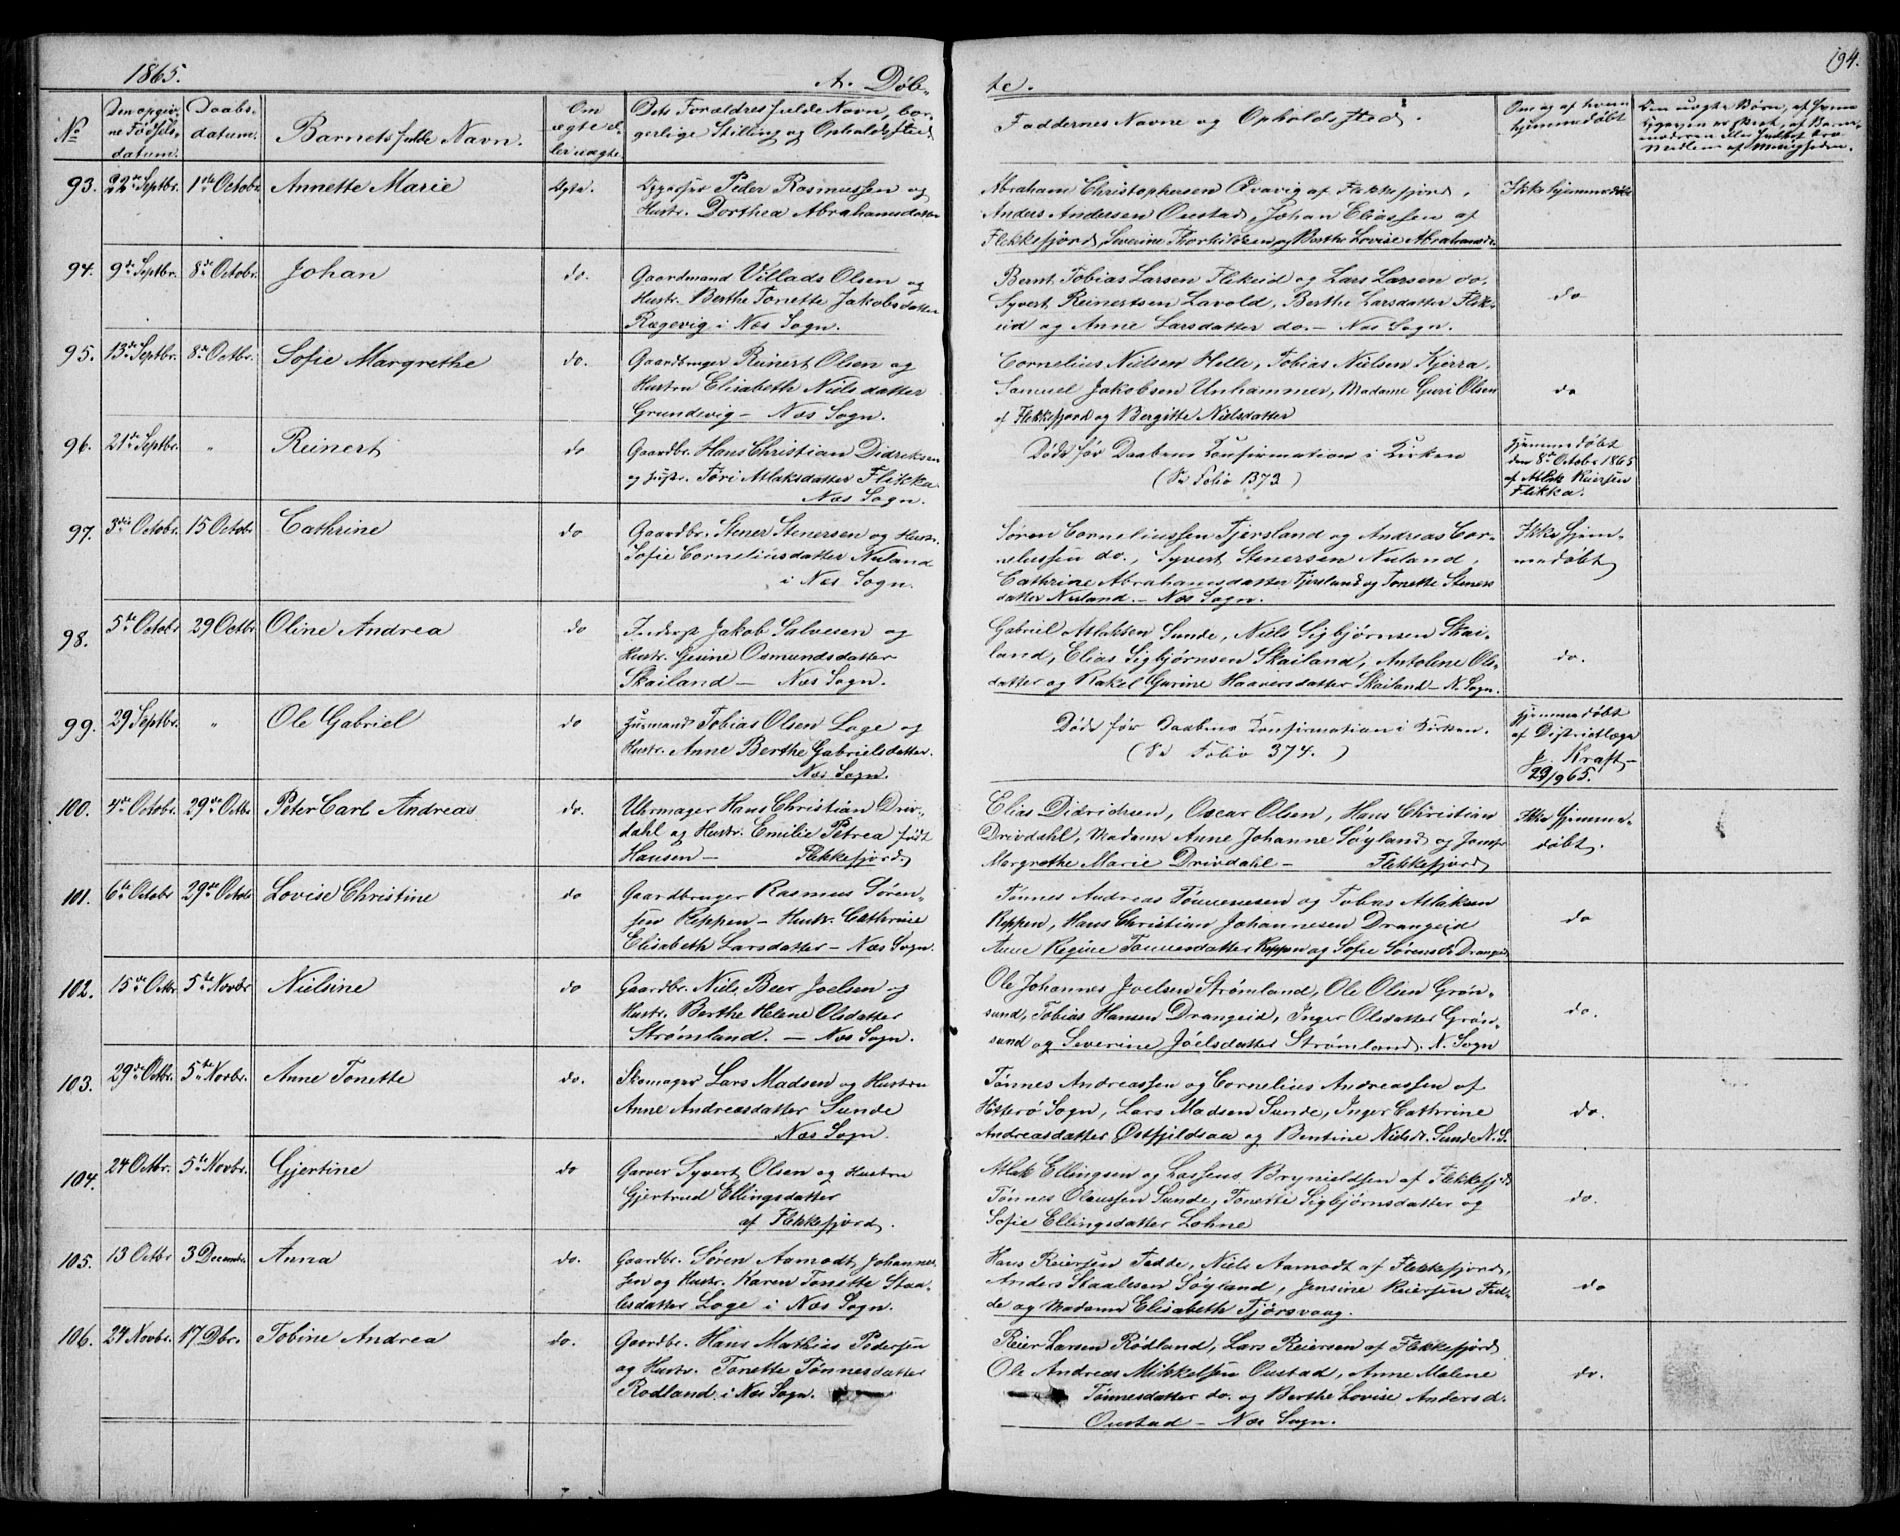 1865.
A. Døb-
te.
194.
No
Den opgiv-
ne Fødsels-
datum.
Daabs-
datum.
Barnets fulde Navn.
Om
ægte el-
ler uægte.
Dets Forældres fulde Navn, bor-
gerlige Stilling og Opholdssted
Faddernes Navne og Opholdssted.
Om og af hvem
hjemmedøbt
93. 22de Septbr. 1ste Octobr. Annette Marie Ægte. Peder Rasmussen og
Hustr. Dorthea Abrahamsdatter
Abraham Christophersen af Flekkefjord,
Anders Andersen Oustad, Johan Eliassen af
Flekkefjord, Severine Thorkildsen og Berthe Lovise Abrahamsdr.
Ikke hjemmedøbt
94. 9de Septbr. 8de Octobr. Johan do. Gaardmand Villads Olsen og
Hustr. Berthe Tonette Jakobsdatter
Rægevig i Næs Sogn.
Bernt Tobias Larsen Flikeid og Lars Larsen do.
Syvert Reinertsen Lavold, Berthe Larsdatter Flik-
eid og Anne Larsdatter do. – Næs Sogn.
do
95. 13de Septbr. 8de Octbr. Sofie Margrethe do. Gaardbruger Reinert Olsen og
Hustru Elisabeth Nielsdatter
Grundevig – Næs Sogn.
Cornelius Nilsen Helle, Tobias Nielsen Kjerra,
Samuel Jakobsen Unhammer, Madame Guri Olsen
af Flekkefjord og Bergitte Nielsdatter
do
96. 21de Septbr. " Reinert do Gaardbr. Hans Christian Didriksen
og Hustr. Tori Atlaksdatter Flikka
Næs Sogn.
Døde før Daabens Confirmation i Kirken
(Se Folio 1373)
Hjemmedøbt
den 8de Octobr 1865
af Atlak Reiersen
Flikka.
97. 3die Octobr. 15 Octobr Cathrine do Gaardbr. Stener Stenersen og Hustr.
Sofie Corneliusdatter Nuland
i Næs Sogn.
Søren Corneliussen Tjersland og Andreas Cor-
neliussen do., Syvert Stenersen Nuland,
Cathrine Abrahamsdatter Tjersland og Tonette Steners
datter Nuland. – Næs Sogn.
Ikke hjem-
medøbt
98. 5te Octobr 29 Octbr. Oline Andrea do Inderst Jakob Salvesen og
Hustr. Gesine Osmundsdatter
Skailand – Næs Sogn.
Gabriel Atlaksen Sunde, Niels Sigbjørnsen Skai-
land, Elias Sigbjørnsen Skailand, Antolene Ols-
datter og Rakel Gurine Haaversdatter Skailand – N. Sogn.
do.
99. 29 Septbr. " Ole Gabriel do Husmand Tobias Olsen Loge og
Hustr. Anne Berthe Gabrielsdatter.
Næs Sogn.
Døde før Daabens Confirmation i Kirken.
(Se Folio 374.)
Hjemmedøbt
af Distriktlæge
Kraft
29/9 65.
100. 4de Octobr. 29de Octbr Peter Carl Andreas do. Uhrmager Hans Christian Driv-
dahl og Hustr. Emilie Petrea født
Hansen – Flekkefjord.
Elias Didricksen, Oscar Olsen, Hans Christian
Drivdahl, Madame Anne Johanne Søyland og Jomfr.
Margrethe Marie Drivdahl – Flekkefjord
Ikke hjemme-
døbt.
101. 6te Octobr 29de Octobr Lovise Christine do Gaardbruger Rasmus Søren-
sen Reppen – Hustr. Cathrine
Elisabeth Larsdatter – Næs Sogn.
Tønnes Andreas Tønnessen og Tobias Atlaksen
Reppen, Hans Christian Johannesen Drangeid
Anne Regine Tønnesdatter Reppen og Sofie Sørensdr Drangeid
do
102. 15de Octbr 5te Novbr Nielsine do Gaardbr. Niels Beer Joelsen og
Hustr. Berthe Helene Olsdatter
Strømland. – Næs Sogn.
Ole Johannes Joelsen Strømland, Ole Olsen Grøn-
sund, Tobias Hansen Drangeid, Inger Olsdatter Grøn-
sund og Severine Joelsdatter Strømland. N. Sogn
do.
103. 29de Octbr. 5te Novbr. Anne Tonette do. Skomager Lars Madsen og Hustru
Anne Andreasdatter Sunde
Næs Sogn.
Tønnes Andreassen og Cornelius Andreassen af
Hitterø Sogn, Lars Madsen Sunde, Inger Cathrine
Andreasdatter Østfjeldsaa og Bentine Nielsdr. Sunde N. S.
do.
104. 24 Octbr. 5te Novbr. Gjertine do Garver Syvert Olsen og Hustru
Gjertrud Ellingsdatter
af Flekkefjord.
Atlak Ellingsen og Brynieldsen af Flekkefjord
Tønnes Olaussen Sunde, Tonette Sigbjørnsdatter og
Sofie Ellingsdatter Lohne
do.
105. 13 Octbr 3 Decembr. Anna do. Gaardbr. Søren Aamodt Johannes-
sen og Hustr. Karen Tonette Staa-
lesdatter Loge i Næs Sogn.
Hans Reiersen Fedde, Niels Aamodt af Flekkefjord,
Anders Staalesen Søyland, Jensine Reiersen Fed-
de og Madame Elisabeth Tjørsvaag.
do
106. 24 Novbr. 17 Dbr. Tobine Andrea do. Gaardbr. Hans Mathias Pedersen
og Hustr. Tonette Tønnesdatter
Rødland i Næs Sogn.
Reier Larsen Rødland, Lars Reiersen af Flekkefjord
Ole Andreas Mikkelsen Oustad, Anne Malene
Tønnesdatter do. og Berthe Lovise Andersd.
Oustad – Næs Sogn.
do.